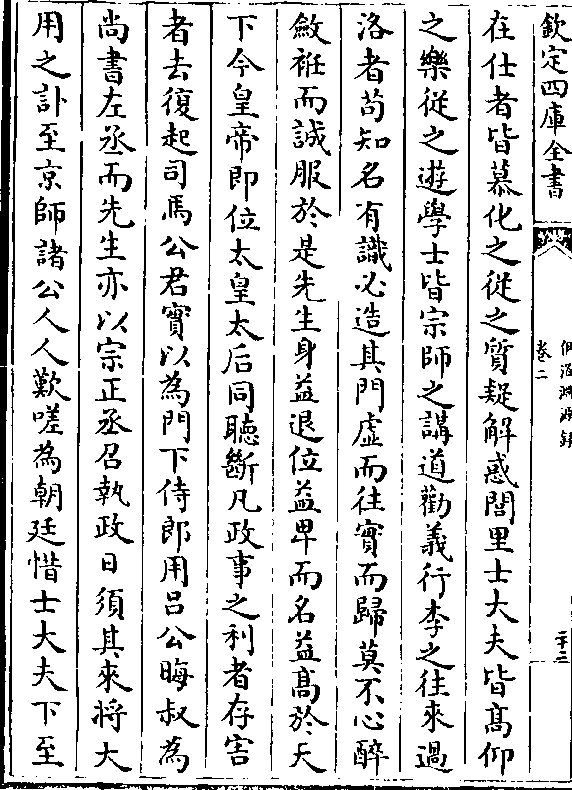 欽定四庫全書
伊洛淵源錄
卷二
二十三
在仕者皆慕化之從之質疑解惑閭里士大夫皆髙仰
之樂從之遊學士皆宗師之講道勸義行李之往來過
洛者苟知名有識必造其門虛而往實而歸莫不心醉
斂衽而誠服於是先生身益退位益卑而名益髙於天
下今皇帝即位太皇太后同聽斷凡政事之利者存害
者去復起司馬公君實以為門下侍郎用吕公晦叔為
尚書左丞而先生亦以宗正丞召執政日須其來將大
用之訃至京師諸公人人歎嗟為朝廷惜士大夫下至